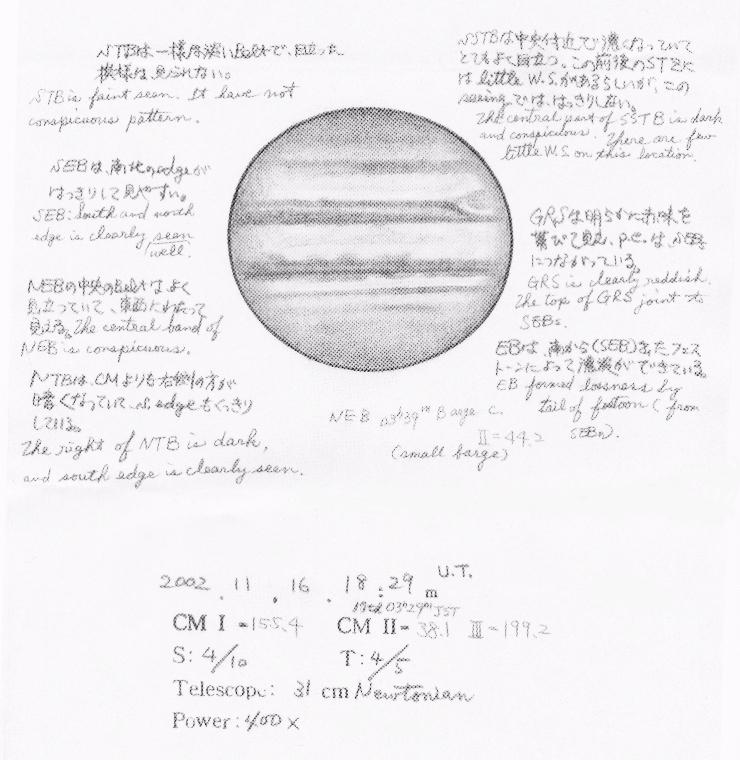 STBは一様な淡いBeltで、目立った
模様は見られない。
STB is faint seen. It have not
conspicuous pattern.
SSTBは中央付近で濃くなっていて
とてもよく目立つ。この前後のSTZに
は little W.S.があるらしいが、この
seeingでは、はっきりしない。
The central part of SSTB is dark
and conspicuous. There are few
little W.S. on this location.
SEBは、南北のedgeが
はっきりして見やすい。
SEB: South and north
edge is clearly seen
well.
GRSは明らかに赤味を
帯びて見え、p.e.は、SEBs
につながっている。
GRS is clearly reddish.
The top of GRS joint to
SEBs.
NEBの中央のBeltはよく
目立っていて、東西にわたって
見える。The central band of
NEB is conspicuous.
EBは、南から(SEB)きたフェス
トーンによって濃淡ができている。
EB formed lossness by
tail of festoon (from
SEBn).
NTBは、CMよりも右側の方が
暗くなっていて、S. edgeもくっきり
している。
The right of NTB is dark,
and south edge is clearly seen.
NEB 03h39m Barge c.
II=44.2
(small barge)
2002. 11. 16. 18:29m U.T.
03h29m JST
CM I = 155.4 CM II= 38.1 III=199.2
S: 4/10 T: 4/5
Telescope: 31 cm Newtonian
Power: 400 x